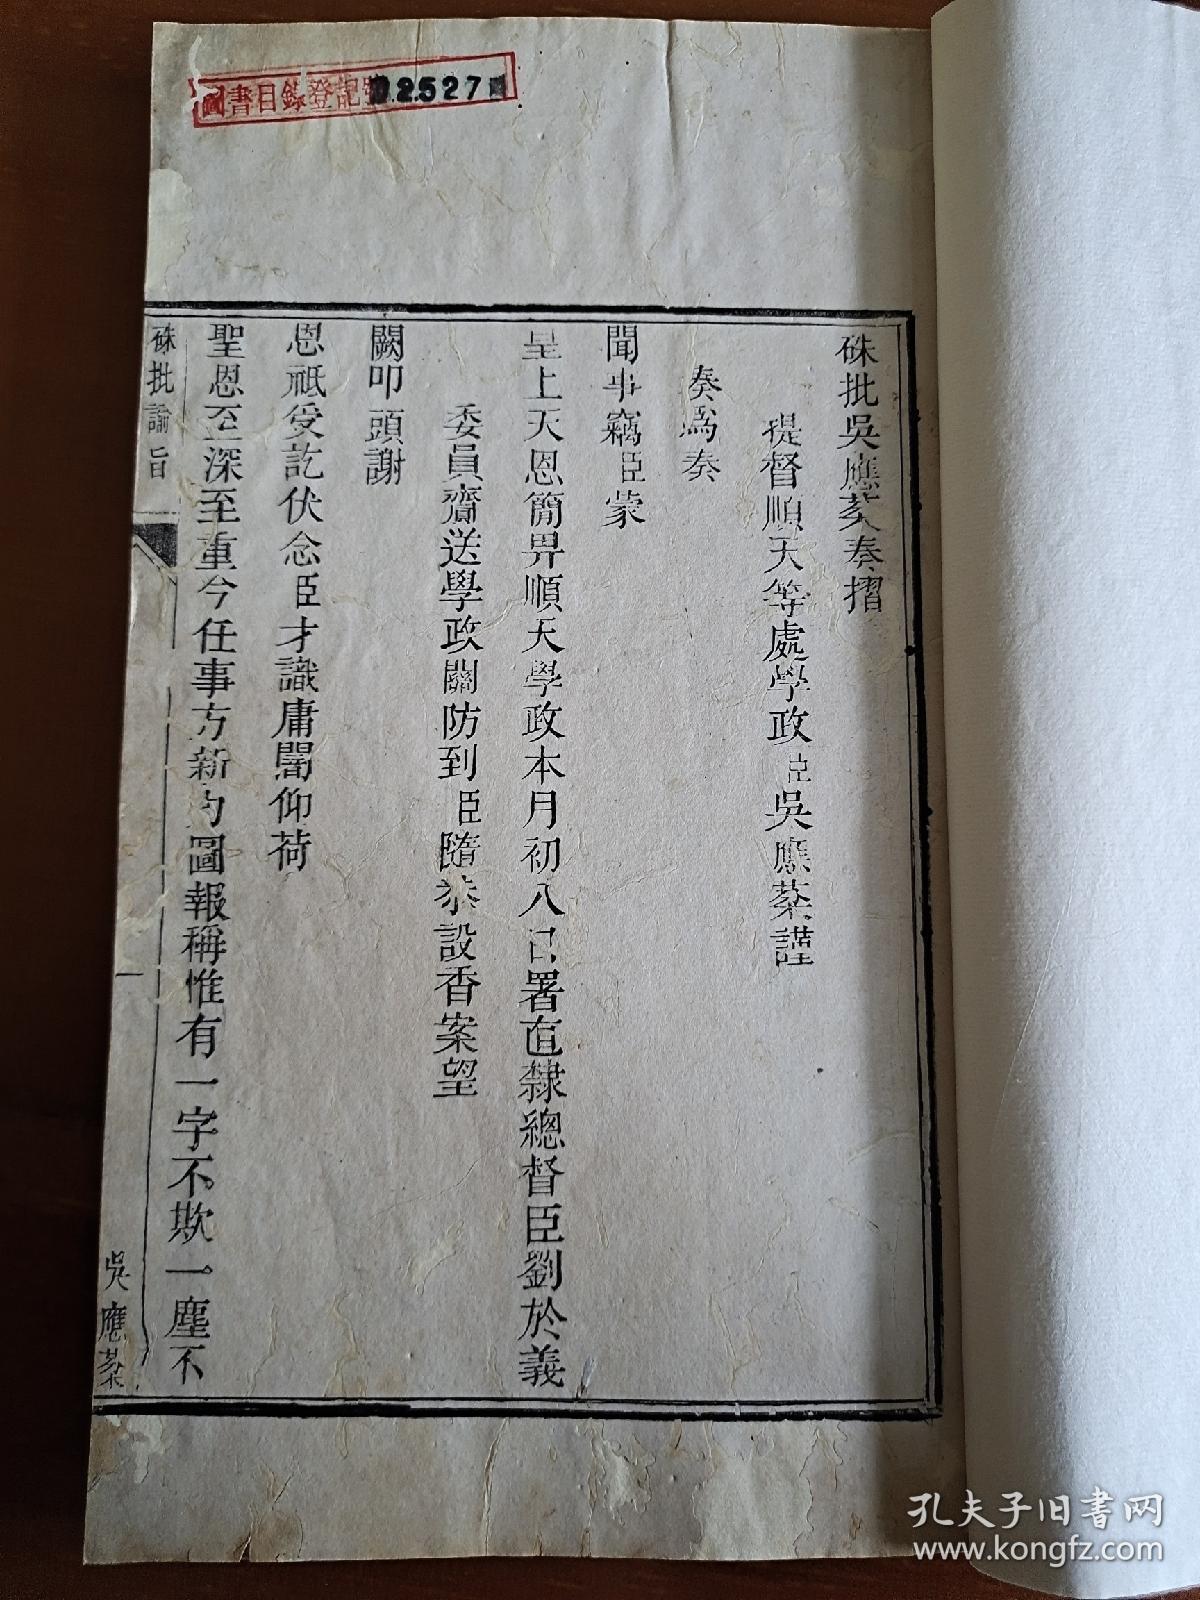 圖書目錄登記號
02527
硃批吳應棻奏摺
提督順天等處學政臣吳應棻謹
奏為奏
聞事竊臣蒙
皇上天恩簡畀順天學政本月初八日署直隸總督臣劉於義
委員齎送學政關防到臣隨恭設香案望
闕叩頭謝
恩祗受訖伏念臣才識庸闇仰荷
聖恩至深至重今任事方新勉圖報稱惟有一字不欺一塵不
硃批諭旨
一
吳應棻
孔夫子旧书网
www.kongfz.com